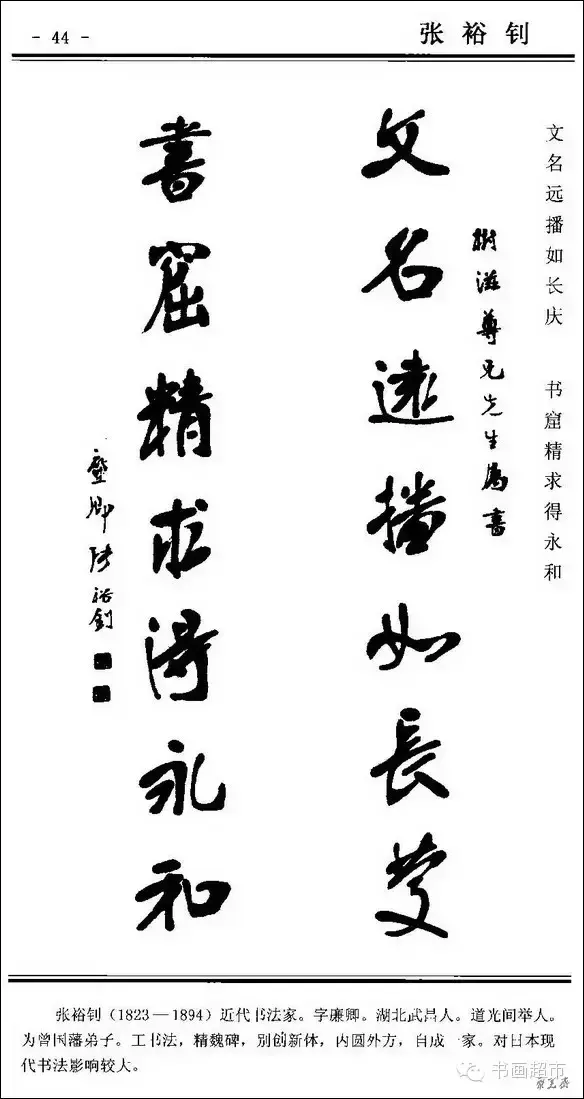 - 44 -
张裕钊
文名远播如长庆 书窟精求得永和
樹滋尊兄先生属書
文名遠播如長慶
書窟精求得永和
廉卿張裕釗
张裕钊（1823—1894）近代书法家。字廉卿。湖北武昌人。道光间举人。
为曾国藩弟子。工书法，精魏碑，别创新体，内圆外方，自成一家。对日本现
代书法影响较大。
书画超市